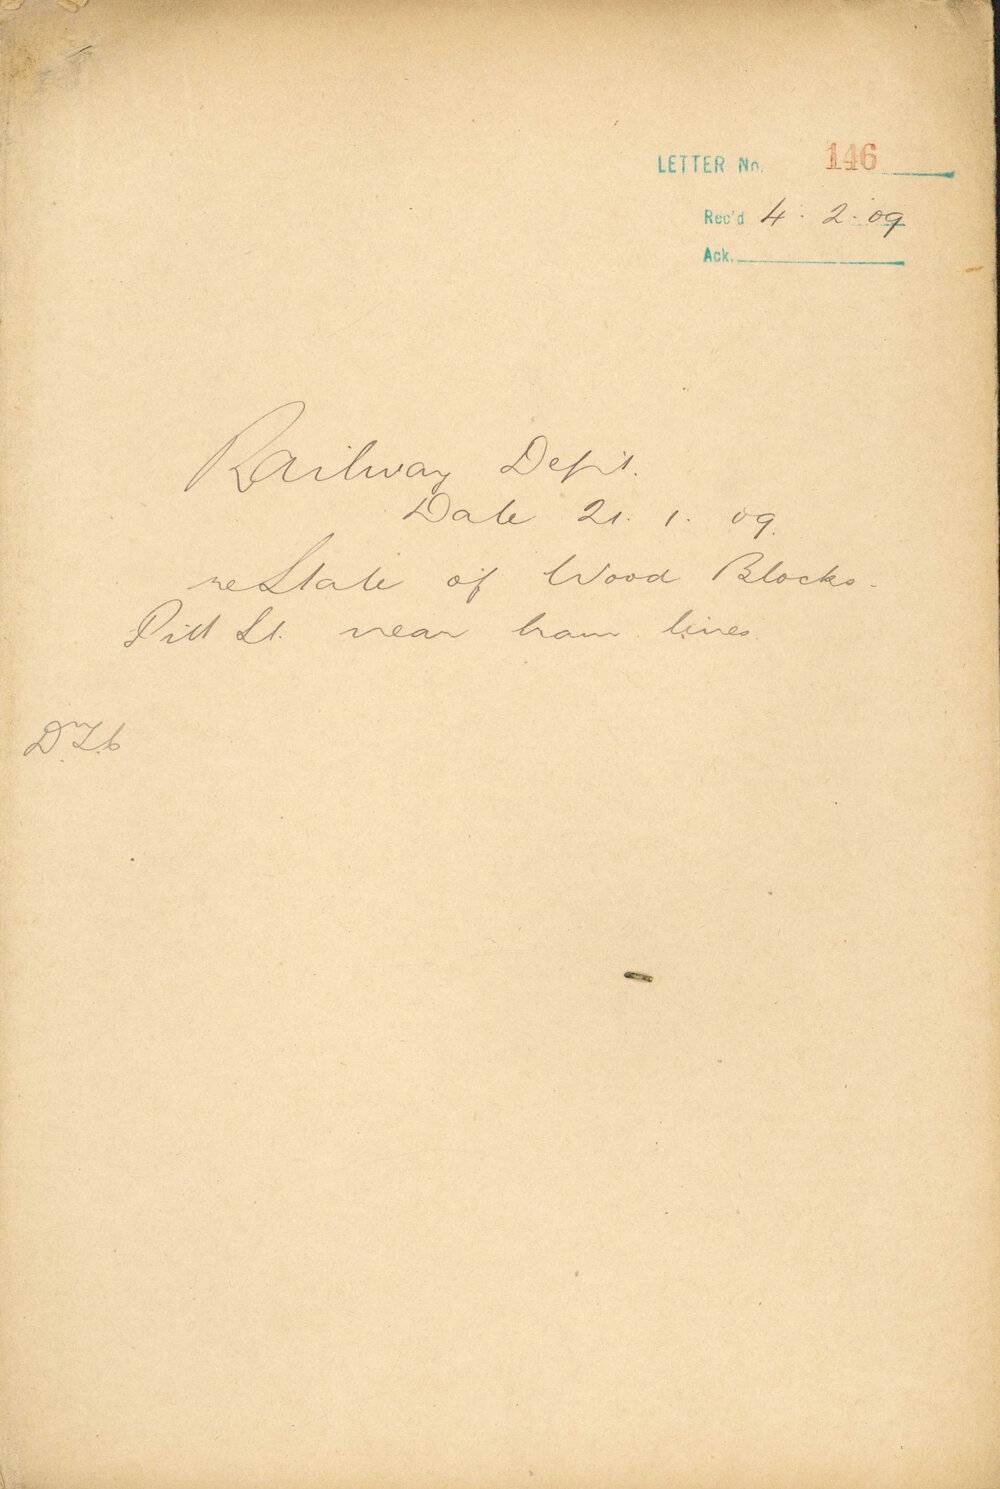 LETTER No. 146
Rec'd 4. 2. 09
Ack.
Railway Dept.
Date 21. 1. 09.
re State of Wood Blocks.
Pitt St. near tram lines.